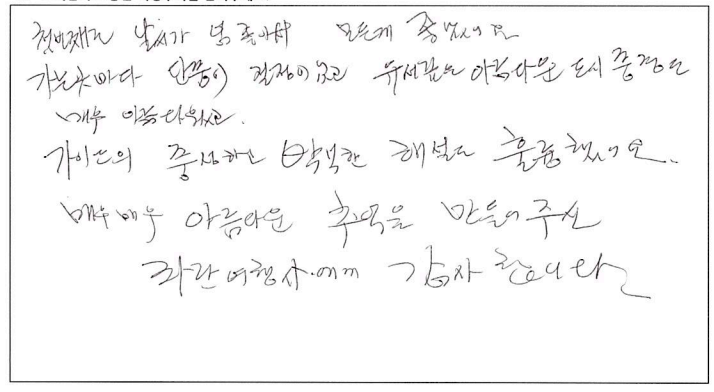 첫번째로 날씨가 넘 좋아서 모든게 좋았어요
가는곳마다 단풍이 절정이었고 유서깊고 아름다운 도시 풍경도
매우 아름다웠고.
가이드의 충실하고 해박한 해설도 훌륭했어요.
매우매우 아름다운 추억을 만들어주신
파란여행사에게 감사합니다